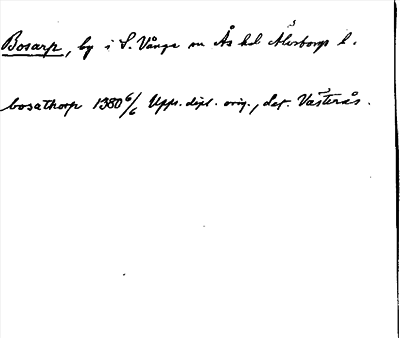 Bosarp, by i S. Vånga sn Ås hd Älvsborgs l.
bosathorp 1380 6/6 Upps. dipl. orig., dat. Västerås.